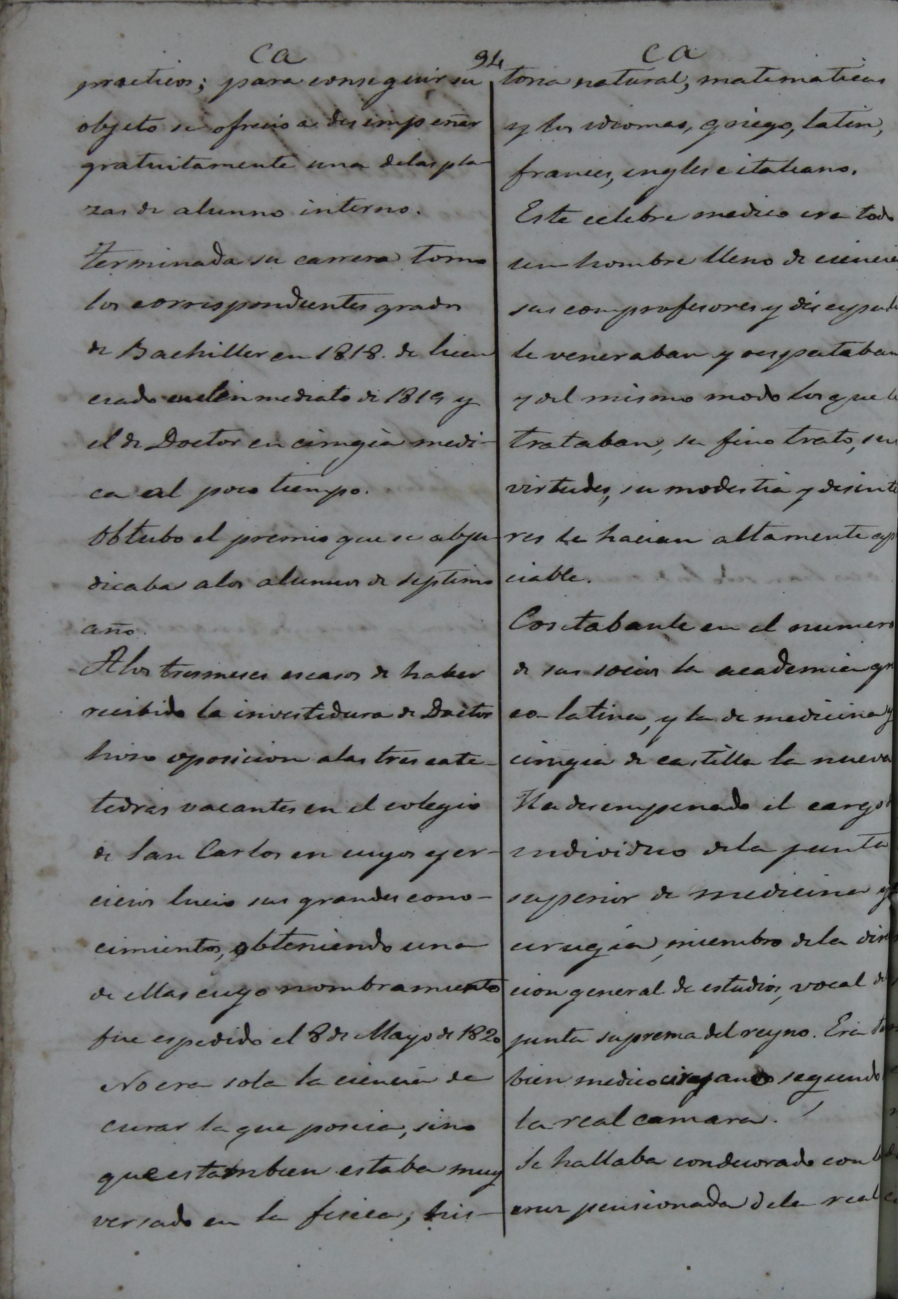 Ca
94
Ca
practicos; para conseguir su
objeto se ofrecio a desempeñar
gratuitamente una delas pla-
zas de alunno interno.
terminada su carrera tomo
los correspondientes grados
de Bachiller en 1818. de licen
ciado en el inmediato de 1819 y
el de Doctor en cirugia medi-
ca al poco tiempo.
Obtubo el premio que se abju-
dicaba alos alumnos de septimo
año.
A los tres meses escasos de haber
recibido la investidura de Doctor
hizo oposicion alas tres cate-
tedras vacantes en el colegio
de San Carlos en cuyos ejer-
cicios lucio sus grandes cono-
cimientos, obteniendo una
de ellas cuyo nombramiento
fue espedido el 8 de Mayo de 1820
No era sola la ciencia de
curar la que poseia, sino
que estambien estaba muy
versado en la fisica, his-
toria natural, matematicas
y los idiomas, griego, latin,
frances, ingles e italiano.
Este celebre medico era todo
un hombre lleno de ciencia
sus comprofesores y discipulo
le veneraban y respetaban
y del mismo modo los que le
trataban, su fino trato, sus
virtudes, su modestia y desinte
res le hacian altamente apr
ciable.
Contabanle en el numero
de sus socios la academia gre
co-latina, y la de medicina y
cirugia de castilla la nueva
Ha desempenado el cargo de
individuo dela junta
superior de medicina y
cirugia, miembro dela direc
cion general de estudios, vocal de
junta suprema del reyno. Era tam
bien medico cirujano segundo
la real camara.
Se hallaba condecorado con la
cruz pensionada dela real